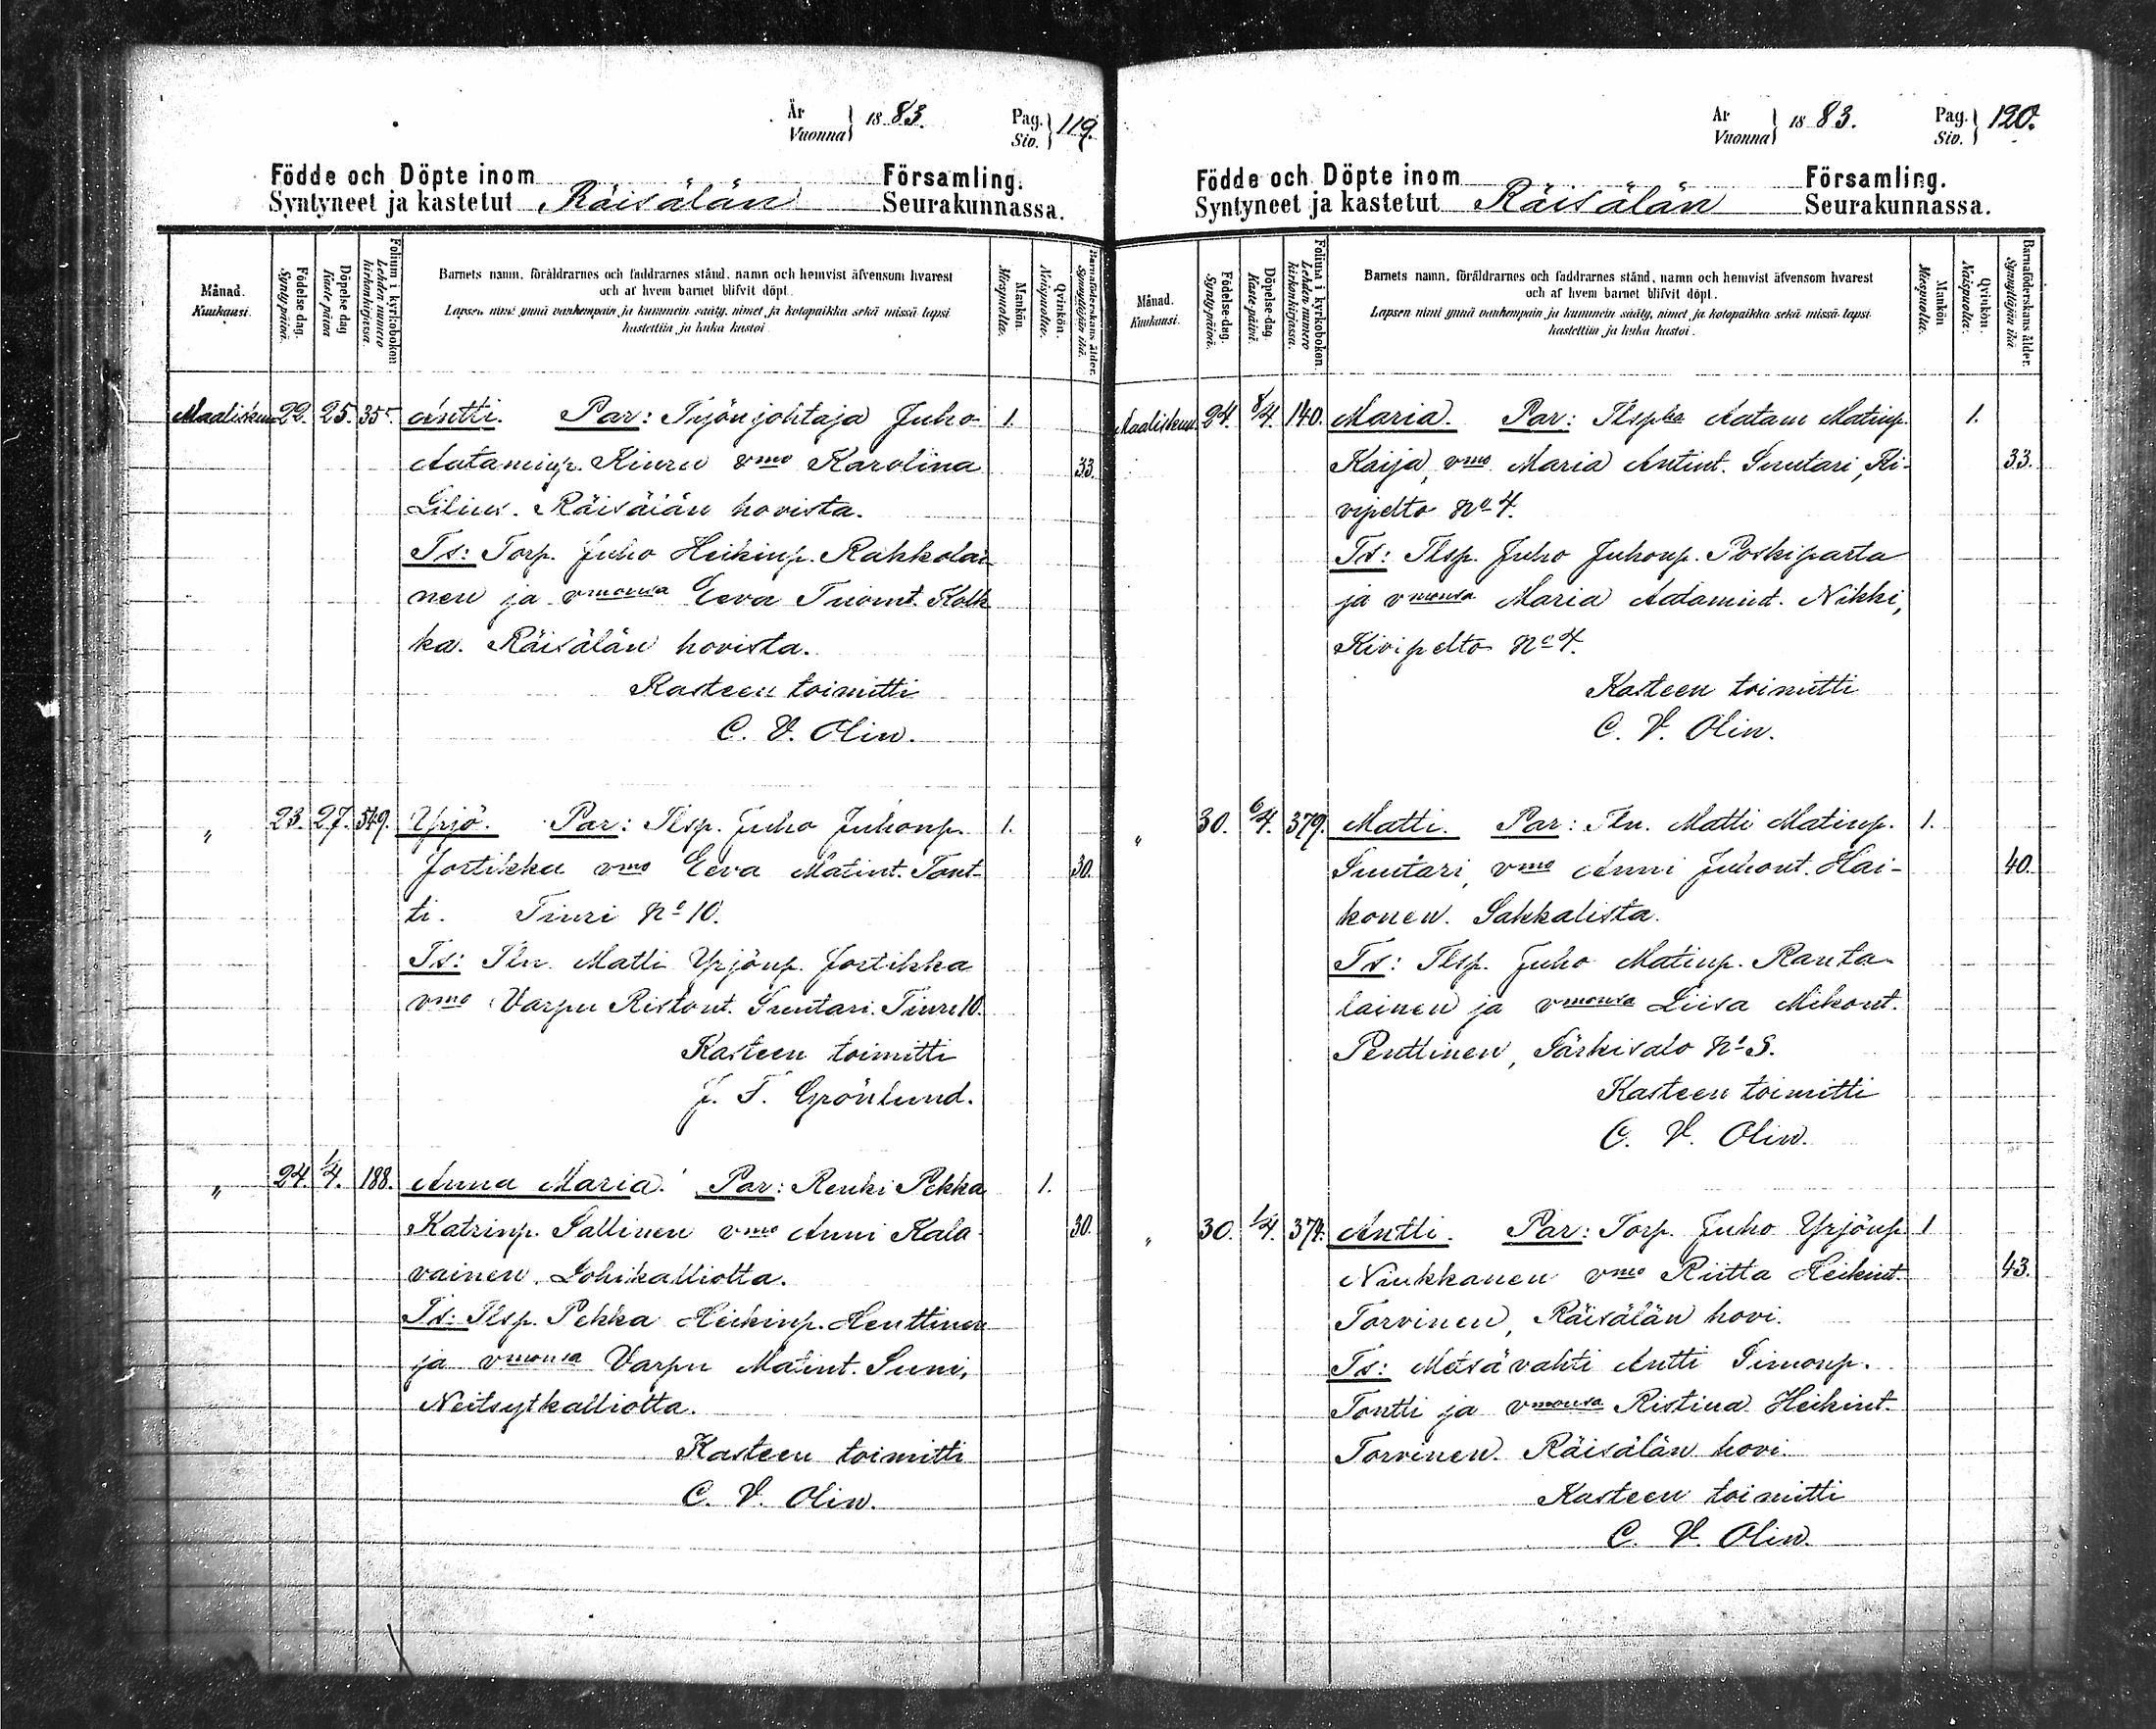 År
Vuonna } 1883.
Pag.
Siv. } 119.
Födde och Döpte inom Församling.
Syntyneet ja kastetut Räisälän Seurakunnassa.
Månad.
Kuukausi.
Födelse dag.
Syntypäivä.
Döpelse dag
Kaste päivä
Folium i kyrkoboken
Lehden numero
kirkonkirjassa.
Barnets namn, föräldrarnes och faddrarnes stånd, namn och hemvist äfvensom hvarest
och af hvem barnet blifvit döpt.
Lapsen nimi ynnä vanhempain ja kummein sääty, nimet ja kotopaikka sekä missä lapsi
kastettiin ja kuka kastoi.
Mankön.
Miespuolia.
Qvinkön.
Naispuolia.
Barnaföderskans ålder.
Synnyttäjän ikä.
Maaliskuu 22. 25. 355 Antti. Par: Työnjohtaja Juho 1.
Aataminp. Kiuru vmo Karolina 33.
Lilius. Räisälän hovista.
Ts: Torp. Juho Heikinp. Rahkolai-
nen ja vmonsa Eeva Tuomt. Kolk
ka. Räisälän hovista.
Kasteen toimitti
C. V. Olin.
" 23. 27. 549. Yrjö. Par: Tlsp. Juho Juhonp. 1.
Jortikka vmo Eeva Matint. Tont- 30.
ti. Tiuri No 10.
Ts: Tln. Matti Yrjönp. Jortikka
vmo Varpu Ristont. Suutari. Tiuri 10.
Kasteen toimitti
J. F. Grönlund.
" 24. 1/4. 188. Anna Maria. Par: Renki Pekka 1.
Katrinp. Sallinen vmo Anni Kala 30.
vainen. Lohikalliotta.
Ts: Tlsp. Pekka Heikinp. Henttinen
ja vmonsa Varpu Matint. Suni,
Neitsytkalliotta.
Kasteen toimitti
C. V. Olin.
År
Vuonna } 1883.
Pag.
Siv. } 120.
Födde och Döpte inom Församling.
Syntyneet ja kastetut Räisälän Seurakunnassa.
Månad.
Kuukausi.
Födelse-dag.
Syntypäivä.
Döpelse-dag.
Kaste päivä.
Folium i kyrkoboken.
Lehden numero
kirkonkirjassa.
Barnets namn, föräldrarnes och faddrarnes stånd, namn och hemvist äfvensom hvarest
och af hvem barnet blifvit döpt.
Lapsen nimi ynnä vanhempain ja kummein sääty, nimet ja kotopaikka sekä missä lapsi
kastettiin ja kuka kastoi.
Mankön
Miespuolia.
Qvinkön.
Naispuolia.
Barnaföderskans ålder.
Synnyttäjän ikä
Maaliskuu 24. 8/4. 140. Maria. Par: Tlspka Aatam Matinp. 1.
Kaija, vmo Maria Antint. Suutari, Ki- 33.
vipelto No 4.
Ts: Tlsp. Juho Juhonp. Poskiparta
ja vmonsa Maria Aatamint. Nikki,
Kivipelto No 4.
Kasteen toimitti
C. V. Olin.
" 30. 6/4. 379. Matti. Par: Tln. Matti Matinp. 1.
Suutari, vmo Anni Juhont. Hai- 40.
konen. Sakkalista.
Ts: Tlsp. Juho Matinp. Ranta-
lainen ja vmonsa Liisa Mikont.
Penttinen, Särkisalo No 3.
Kasteen toimitti
C. V. Olin.
" 30. 1/4. 374. Antti. Par: Torp. Juho Yrjönp. 1
Niukkanen vmo Riitta Heikint. 43.
Torvinen, Räisälän hovi.
Ts: Metsävahti Antti Simonp.
Tontti ja vmonsa Ristina Heikint.
Torvinen. Räisälän hovi.
Kasteen toimitti
C. V. Olin.